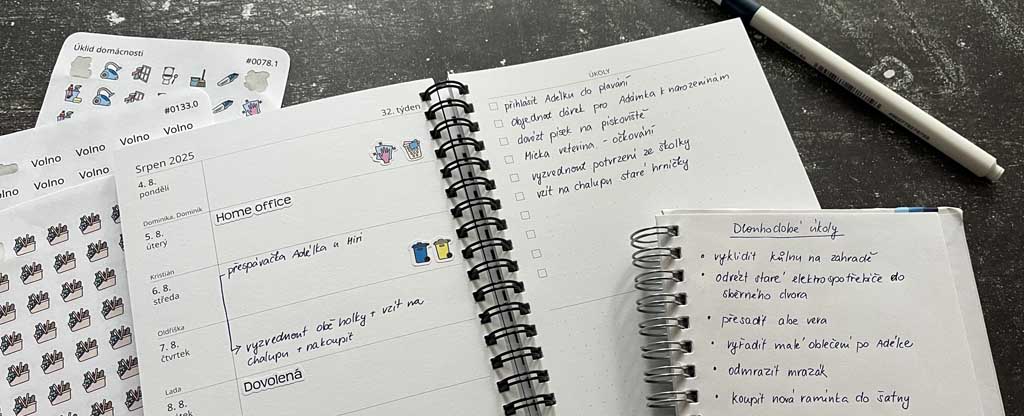 Úklid domácnosti
#0078.1
#0133.0
Volno Volno Volno
Volno Volno Volno
Srpen 2025
32. týden
4. 8.
pondělí
Dominika, Dominik
5. 8.
úterý
Home office
Kristián
6. 8.
středa
přespávačka Adélka u Hiri
Oldřiška
7. 8.
čtvrtek
vyzvednout obě holky + vzít na
chalupu + nakoupit
Lada
8. 8.
Dovolená
ÚKOLY
přihlásit Adélku do plavání
objednat dárek pro Adámka k narozeninám
dovézt písek na pískoviště
Micka veterina - očkování
vyzvednout potvrzení ze školky
vzít na chalupu staré hrníčky
Dlouhodobé úkoly
• vyklidit kůlnu na zahradě
• odvézt staré elektrospotřebiče do
sběrného dvora
• přesadit aloe vera
• vyřadit malé oblečení po Adélce
• odmrazit mrazák
• koupit nová ramínka do šatny